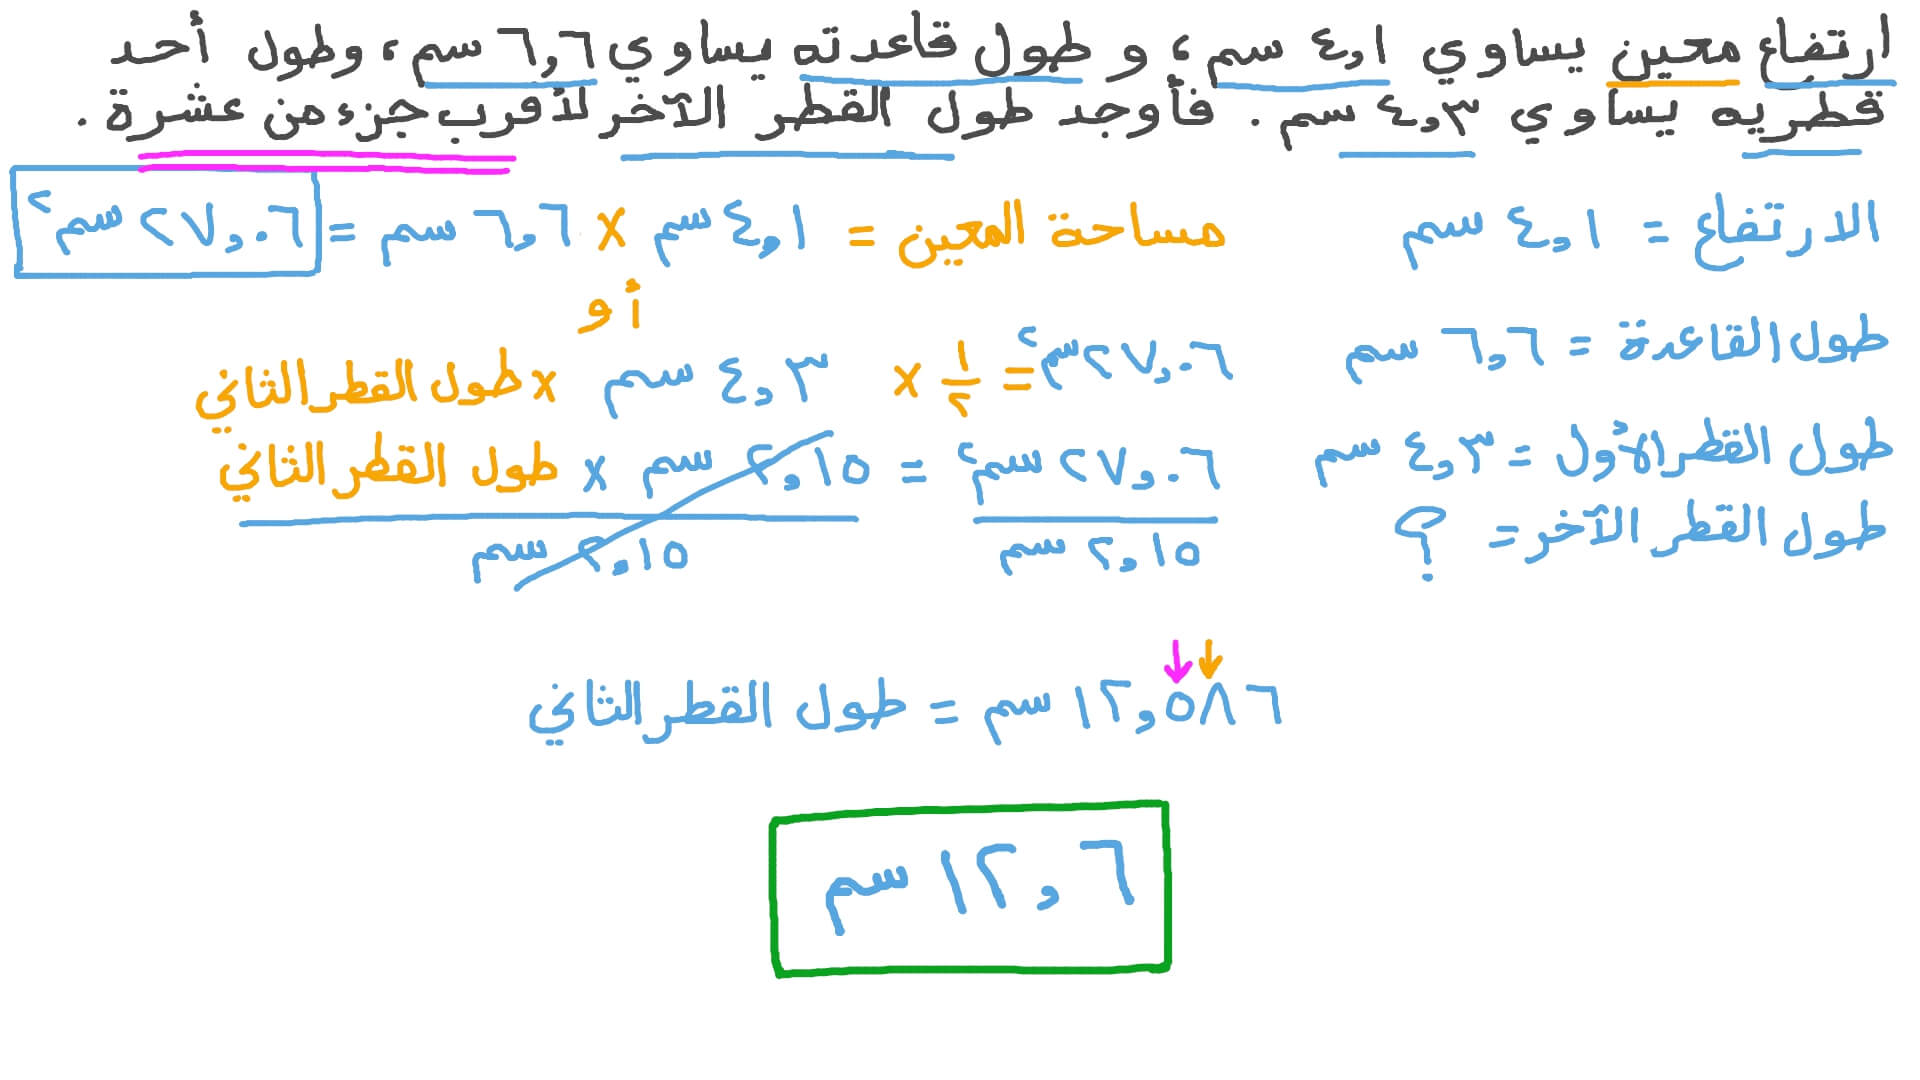 ارتفاع معين يساوي ٤,١ سم، و طول قاعدته يساوي ٦,٦ سم، وطول أحد
قطريه يساوي ٤,٣ سم. فأوجد طول القطر الآخر لأقرب جزء من عشرة.
الارتفاع = ٤,١ سم
مساحة المعين = ٤,١ سم × ٦,٦ سم = ٢٧,٠٦ سم٢
أو
طول القاعدة = ٦,٦ سم
٢٧,٠٦ سم٢ = ١/٢ × ٤,٣ سم × طول القطر الثاني
طول القطر الأول = ٤,٣ سم
٢٧,٠٦ سم٢ = ٢,١٥ سم × طول القطر الثاني
طول القطر الآخر = ؟
٢,١٥ سم ٢,١٥ سم
١٢,٥٨٦ سم = طول القطر الثاني
١٢,٦ سم